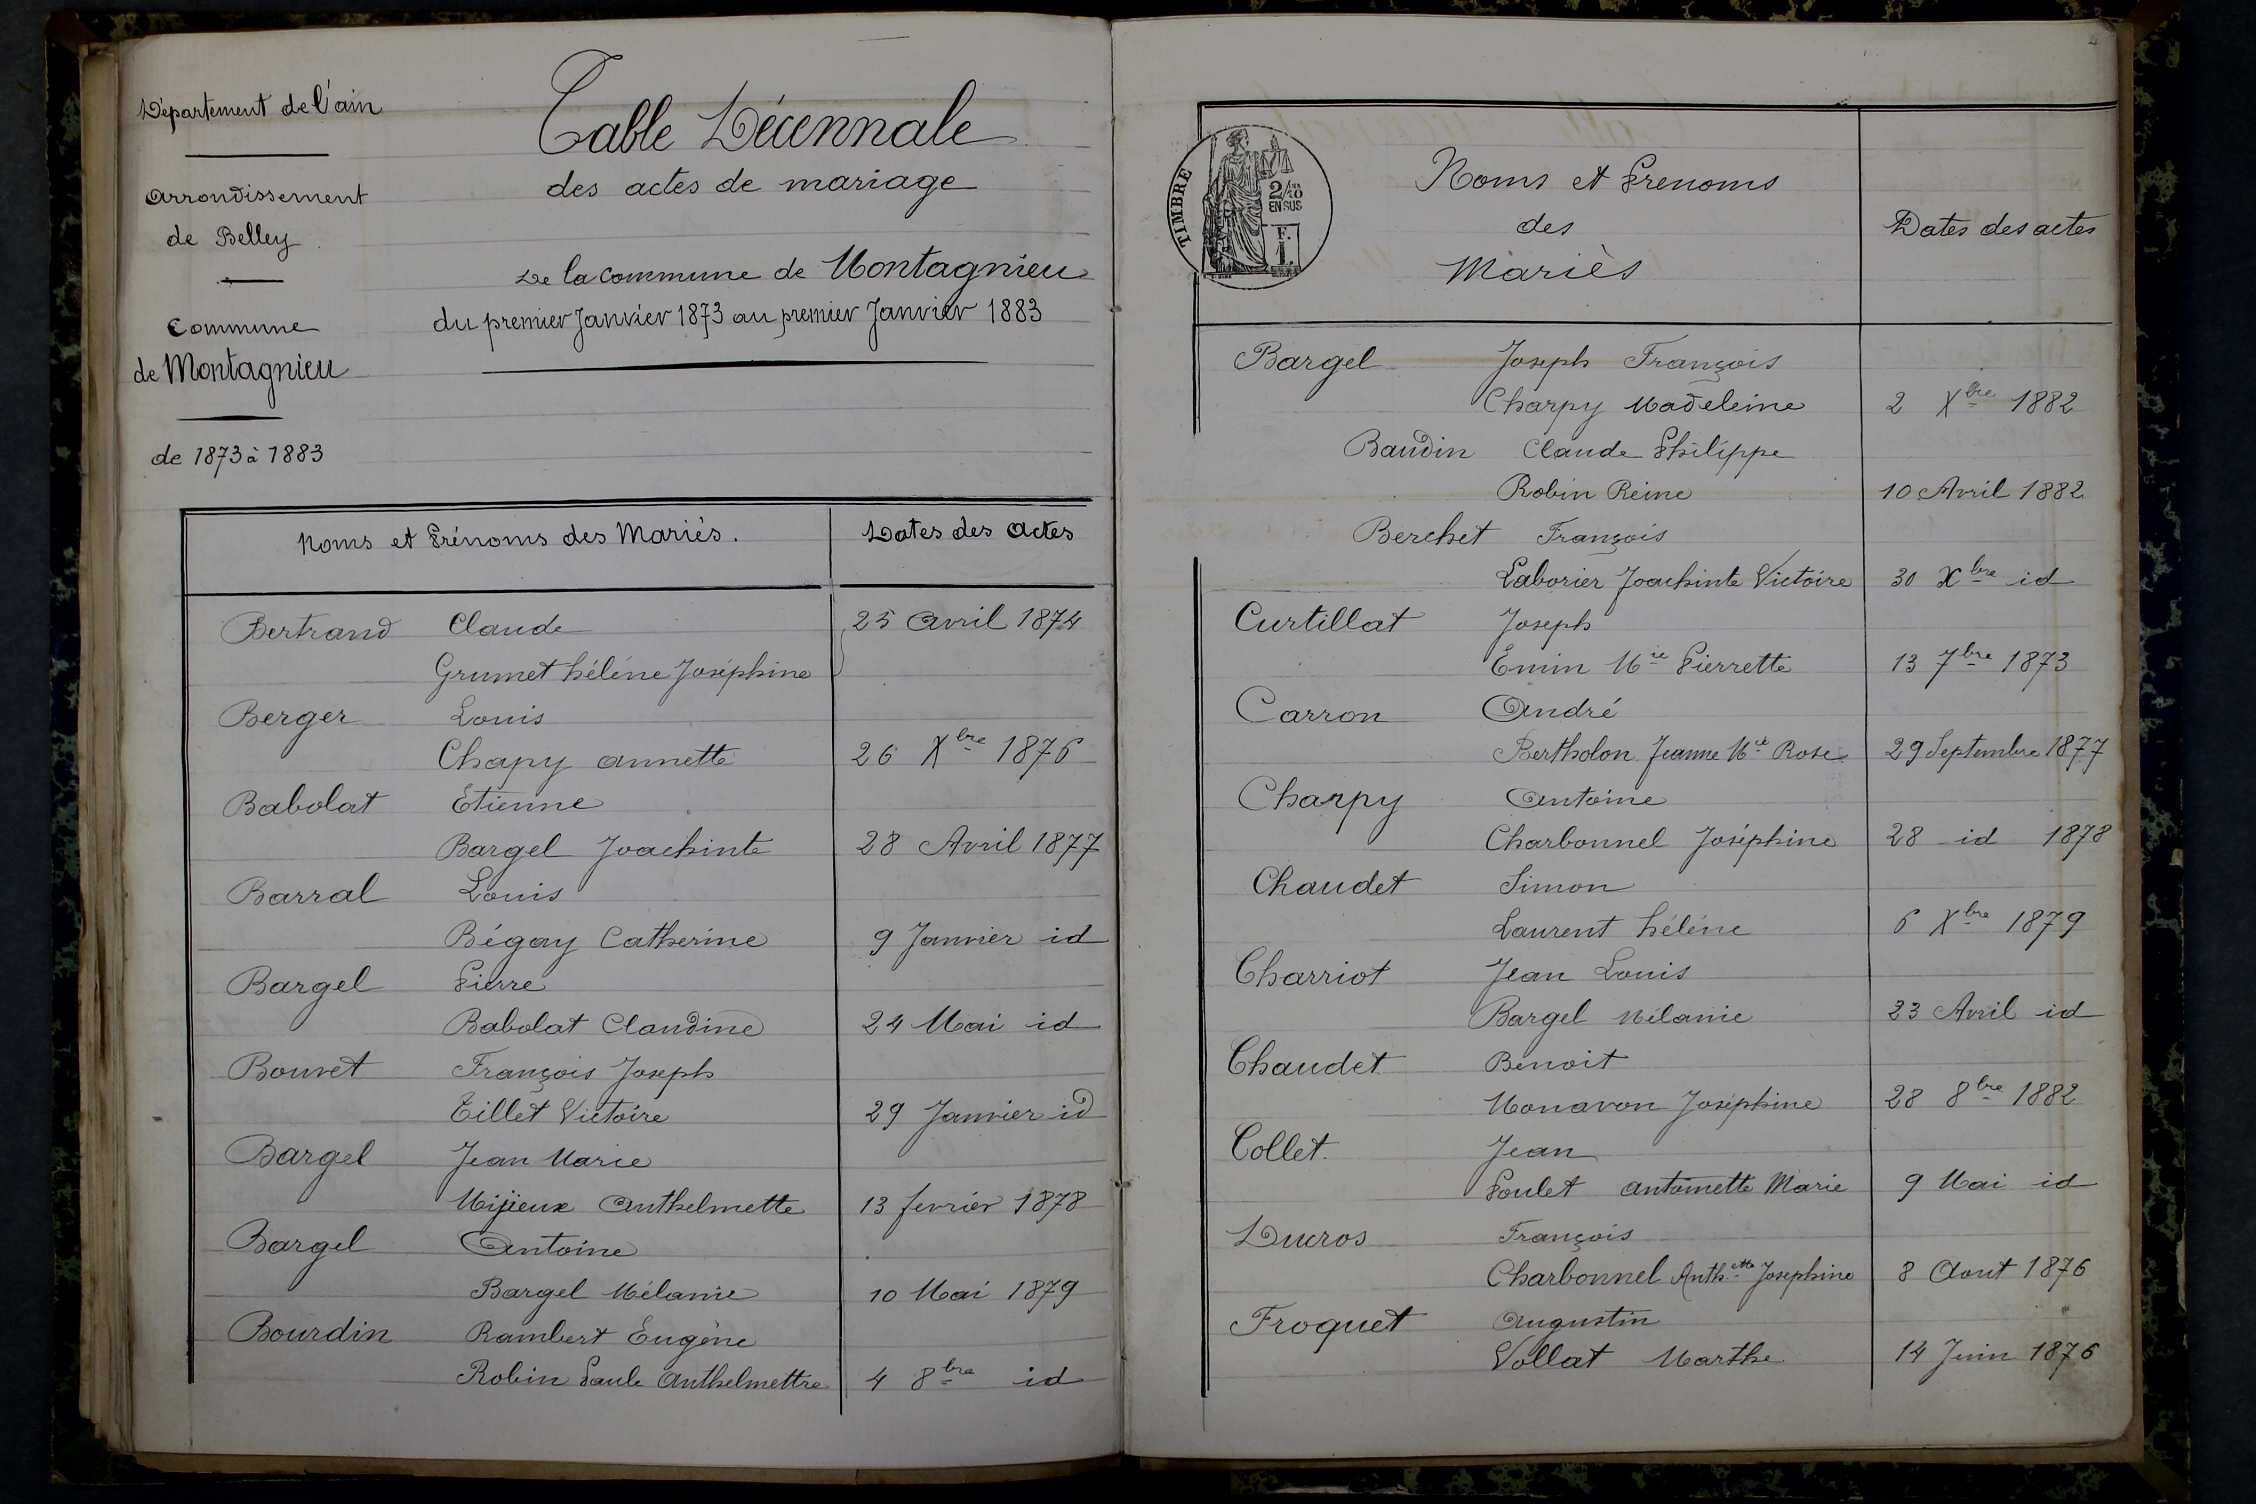 Département de l'ain
arrondissement
de Belley
Commune
de Montagnieu
de 1873 à 1883
Table Décennale
des actes de mariage
De la commune de Montagnieu
du premier Janvier 1873 au premier Janvier 1883
Noms et Prénoms des Mariés. Dates des Actes
Bertrand Claude 25 avril 1874
Grumet hélène Joséphine
Berger Louis
Chapy annette 26 Xbre 1876
Babolat Etienne
Bargel Joachinte 28 Avril 1877
Barral Louis
Bégay Catherine 9 Janvier id
Bargel Pierre
Babolat Claudine 24 Mai id
Bouvet François Joseph
Tillet Victoire 29 Janvier id
Bargel Jean Marie
Mijieux Anthelmette 13 fevrier 1878
Bargel Antoine
Bargel Mélanie 10 Mai 1879
Bourdin Rambert Eugène
Robin Paule Anthelmettre 4 8bre id
TIMBRE
2/10
EN SUS
F.
1.
Noms et Prenoms
des
Mariès
Dates des actes
Bargel Joseph François
Charpy Madeleine 2 Xbre 1882
Baudin Claude Philippe
Robin Reine 10 Avril 1882
Berchet François
Laborier Joachinte Victoire 30 Xbre id
Curtillat Joseph
Emin Mie Pierrette 13 7bre 1873
Carron André
Bertholon Jeanne Mie Rose 29 Septembre 1877
Charpy Antoine
Charbonnel Joséphine 28 id 1878
Chaudet Simon
Laurent hélène 6 Xbre 1879
Charriot Jean Louis
Bargel Mélanie 23 Avril id
Chaudet Benoit
Monavon Joséphine 28 8bre 1882
Collet Jean
Poulet antoinette Marie 9 Mai id
Ducros François
Charbonnel Anth.tte Josephine 8 Aout 1876
Froquet Augustin
Vollat Marthe 14 Juin 1876